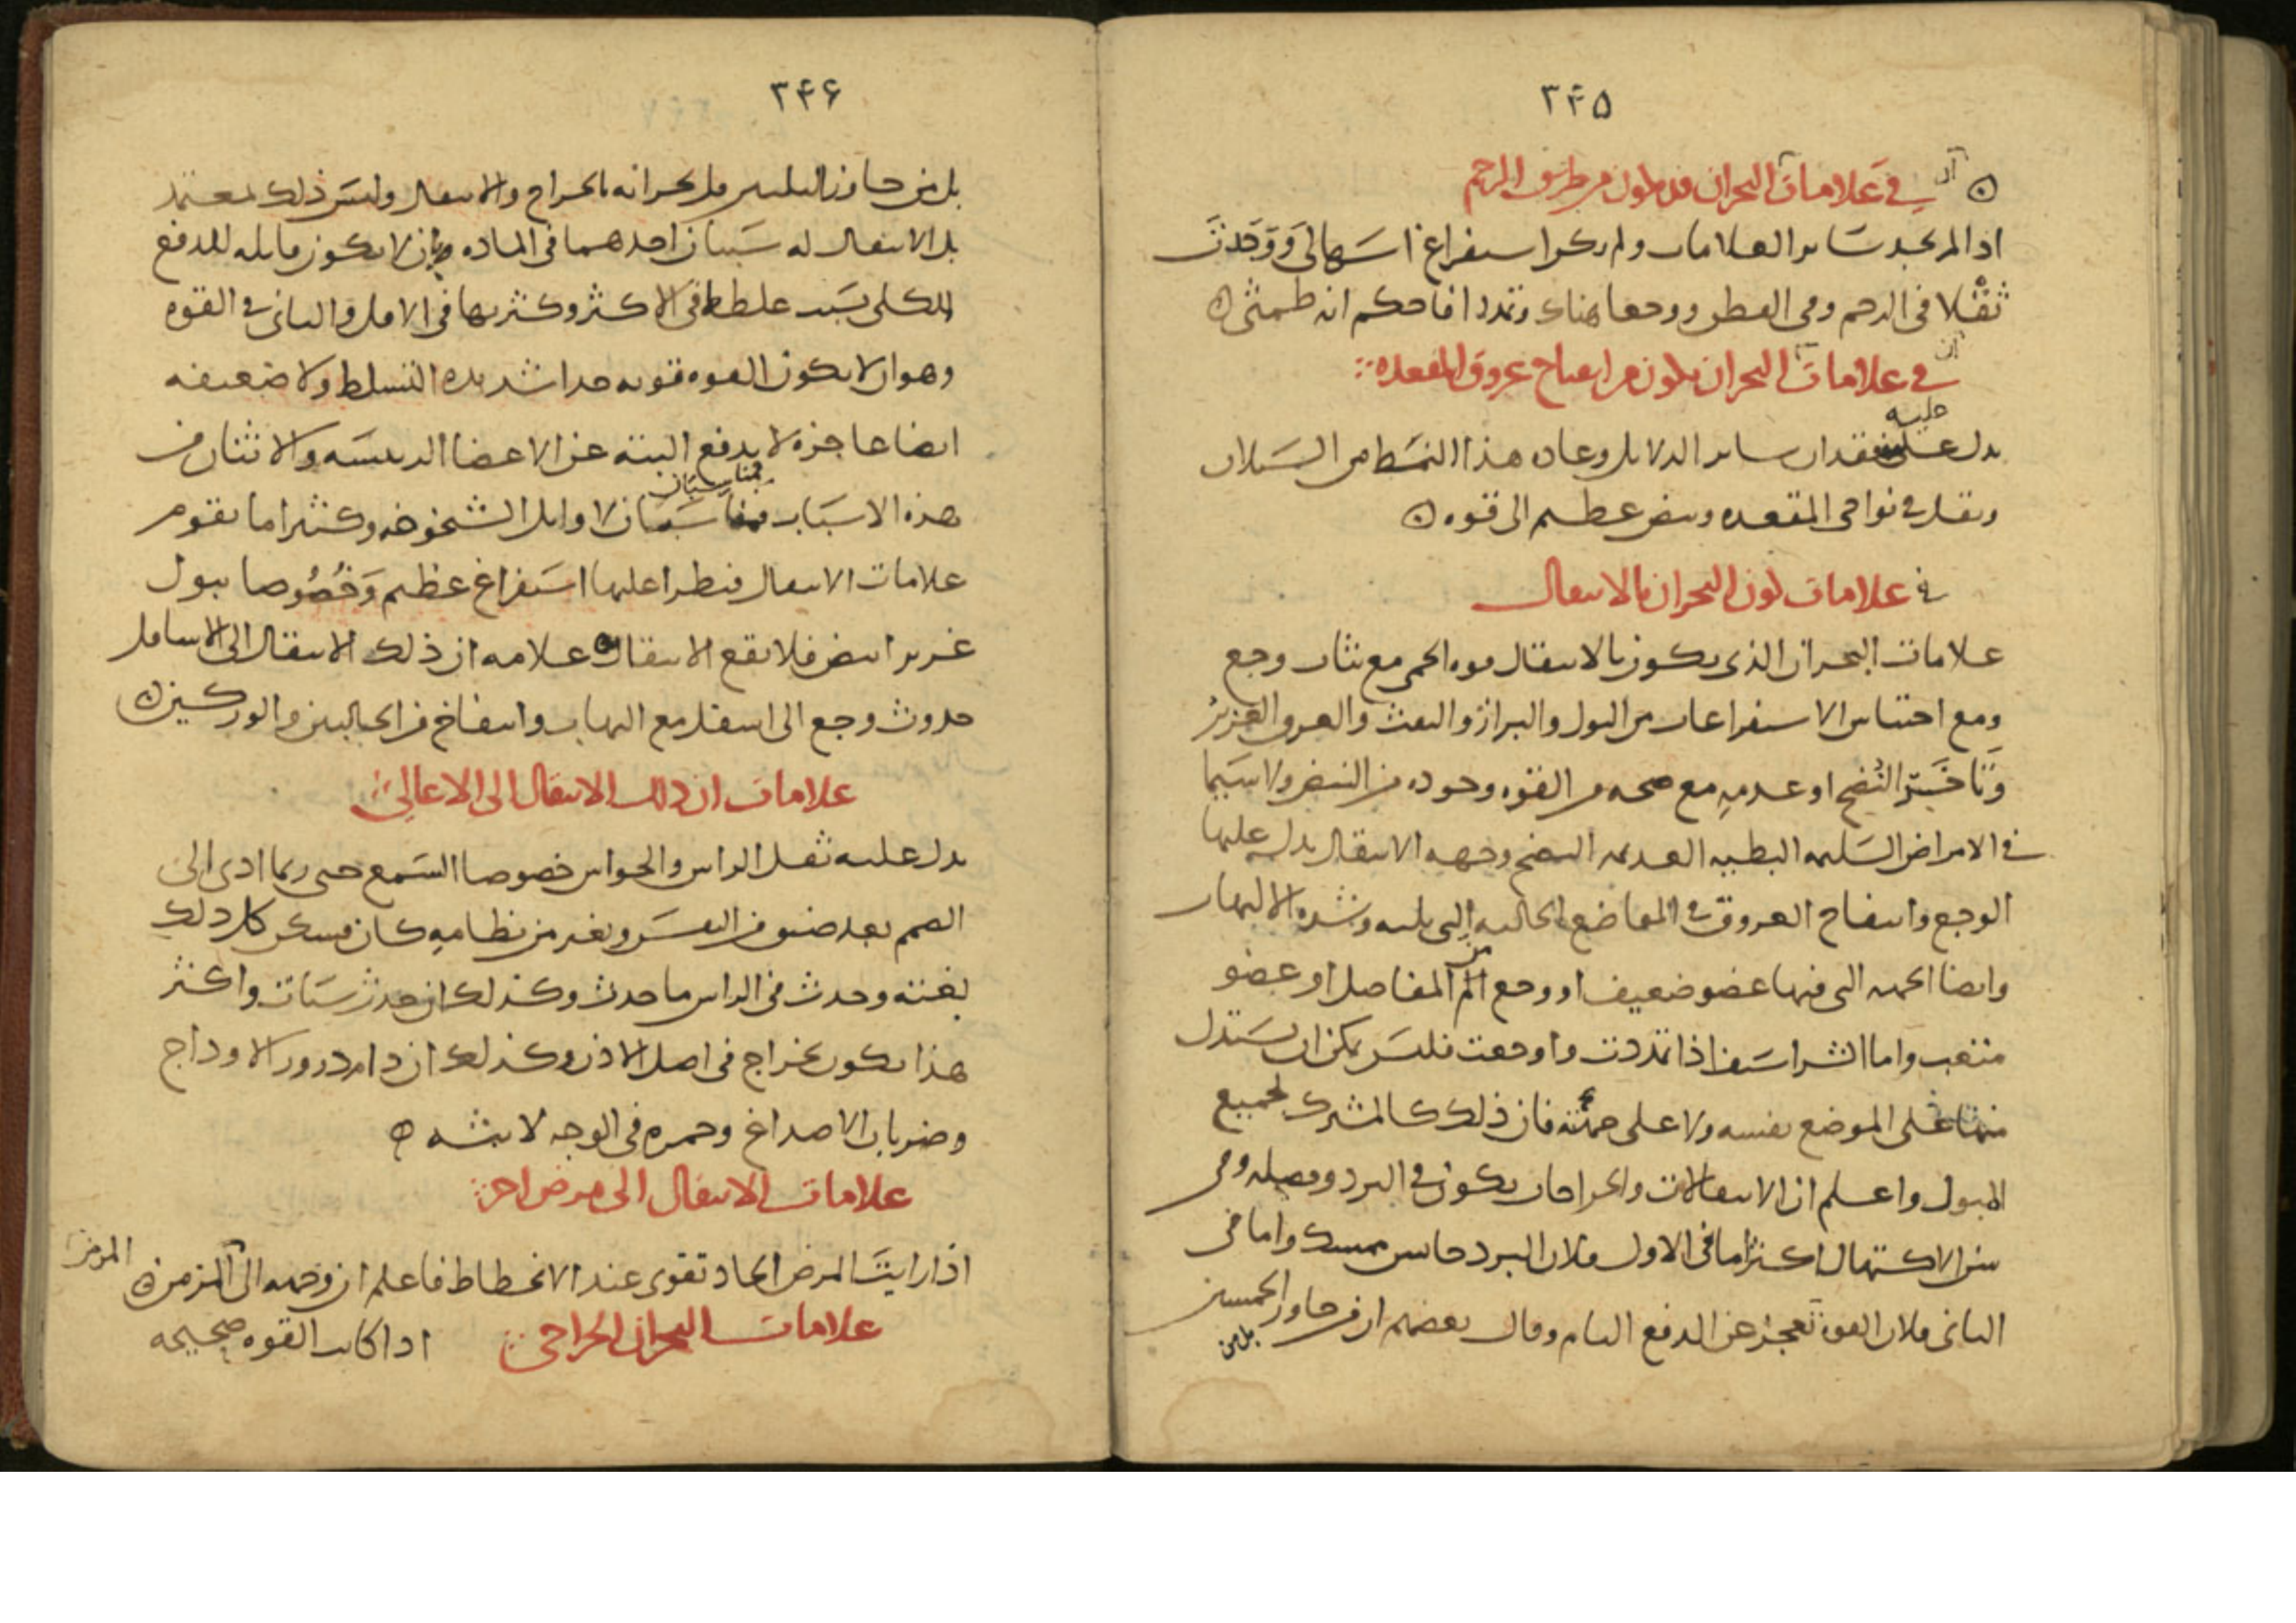 ٣۴۵
في علامات ان البحران قد يكون من طريق الرحم
اذا لم تجد ساير العلامات ولم يكن استفراغ اسهالى ووجدت
ثقلا فى الرحم وفى القطن ووجعا هناك وتمددا فاحكم انه طمثى
في علامات ان البحران يكون من انفتاح عروق المقعده
يدل عليه فقدان ساير الدلايل وعاده هذا النمط من السيلان
وثقل في نواحى المقعده ونبض عظيم الى قوه
في علامات كون البحران بالانتقال
علامات البحران الذى يكون بالانتقال قوه الحمى مع ثبات وجع
ومع احتباس الاستفراغات من البول والبراز والنفث والعرق الغزير
وتاخير النضج او عدمه مع صحه من القوه وجوده من النبض ولا سيما
في الامراض السليمه البطييه العديمه النضج وجهه الانتقال يدل عليها
الوجع وانتفاخ العروق في المواضع الخاليه التى يليه وشده الالتهاب
وايضا الجهه التى فيها عضو ضعيف او وجع من المفاصل او عضو
متعب واما الشراسيف اذا تمددت واوجعت فليس يمكن ان يستدل
منها على الموضع نفسه ولا على جهته فان ذلك كالمشترك لجميع
الميول واعلم ان الانتقالات والخراجات يكون في البرد وفصله وفى
سن الاكتهال اكثر اما فى الاول فلان البرد حابس ممسك واما فى
الثانى فلان القوه تعجز عن الدفع التام وقال بعضهم ان من جاوز الخمسين
بل من
٣۴۶
بل من جاوز الثلثين قل بحرانه بالخراج والانتقال وليس ذلك بمعتمد
بل الانتقال له سببان احدهما فى الماده بان لا يكون قابله للدفع
الكلى بسبب غلظها فى الاكثر وكثرتها فى الاقل والثانى في القوه
وهو ان لا يكون القوه قويه جدا شديده التسلط ولا ضعيفه
ايضا عاجزه لا يدفع البته عن الاعضا الرييسه والاثنان من
هذه الاسباب مناسبان لاوايل الشيخوخه وكثيرا ما تقوم
علامات الانتقال فيطرا عليها استفراغ عظيم وخصوصا ببول
غزير ابيض فلا يقع الانتقال علامه ان ذلك الانتقال الى الاسافل
حدوث وجع الى اسفل مع التهاب وانتفاخ من الحالبين والوركين
علامات ان ذلك الانتقال الى الاعالى
يدل عليه ثقل الراس والحواس خصوصا السمع حتى ربما ادى الى
الصمم بعد ضيق من النفس وتغير من نظامه كان فسكن كل ذلك
بغتته وحدث فى الراس ما حدث وكذلك ان حدث سبات واكثر
هذا يكون بخراج فى اصل الاذن وكذلك ان دام درور الاوداج
وضربان الاصداغ وحمره فى الوجه لابثه
علامات الانتقال الى مرض اخر
اذا رايت المرض الحاد تقوى عند الانحطاط فاعلم ان وجهه الى المزمن
علامات البحران الخراجى اذا كانت القوه صحيحه